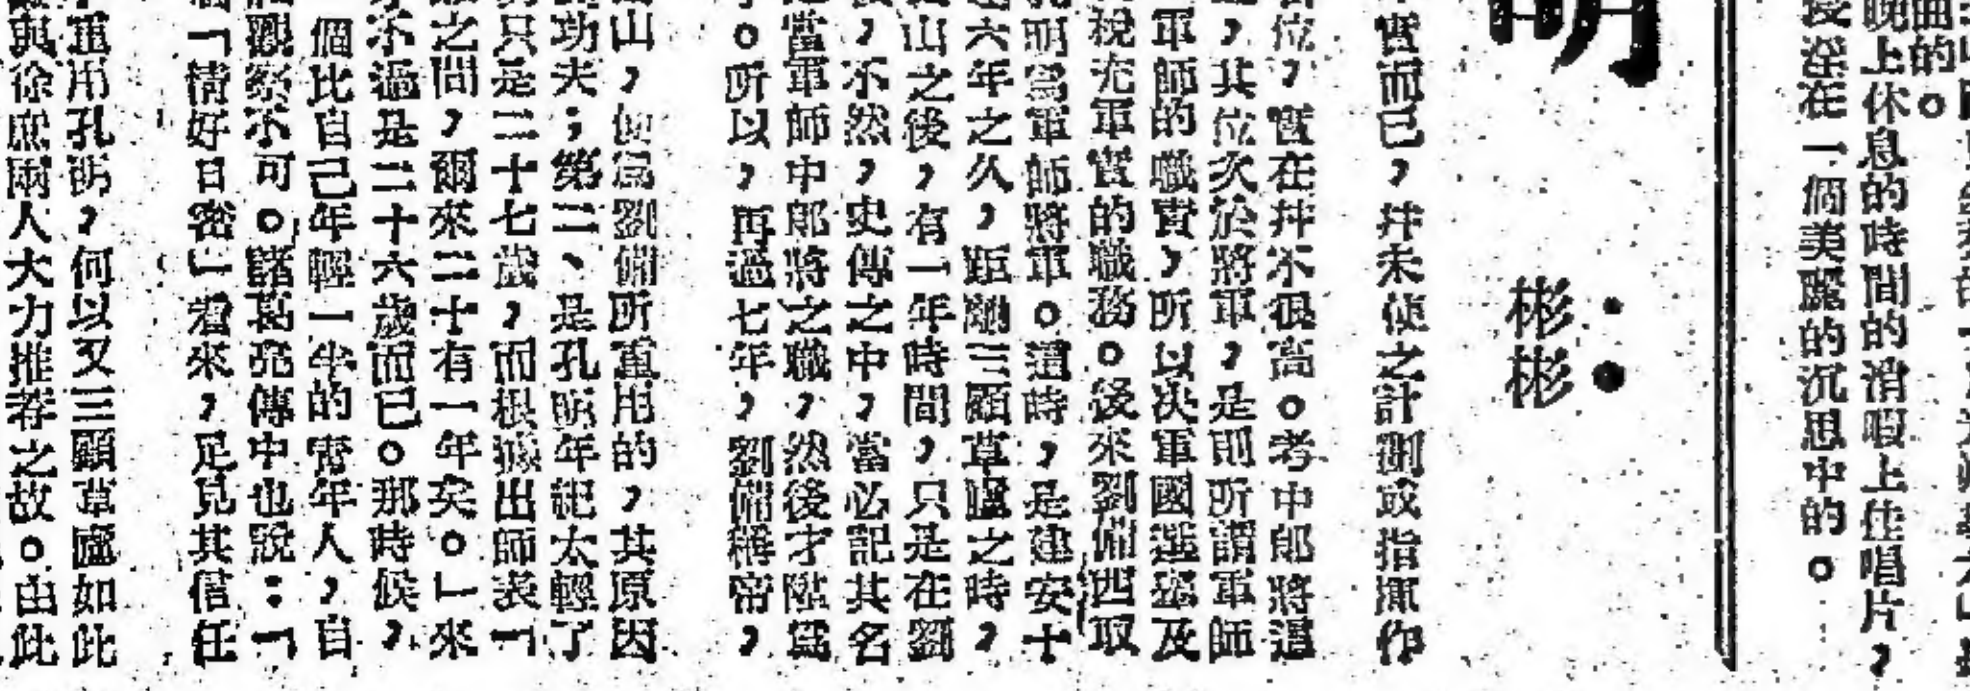 曲的。
晚上休息的時間的消暇上佳唱片，
浸淫在一個美麗的沉思中的。
明
：彬彬
實而已，并未使之計劃或指揮作
位，實在并不很高。考中郎將這
，其位次於將軍，是則所謂軍師
軍師的職責，所以決軍國選舉及
稅充軍實的職務。後來劉備西取
明爲軍師將軍。這時，是建安十
六年之久，距離三顧草廬之時，
山之後，有一年時間，只是在劉
，不然，史傳之中，當必記其名
當軍師中郎將之職，然後才陞爲
。所以，再過七年，劉備稱帝，
山，便爲劉備所重用的，其原因
功夫；第二、是孔明年紀太輕了
只是二十七歲，而根據出師表「
之間，爾來二十有一年矣。」來
不過是二十六歲而已。那時候，
個比自己年輕一半的青年人，自
觀察不可。諸葛亮傳中也說：「
「情好日密」看來，足見其信任
重用孔明，何以又三顧草廬如此
與徐庶兩人大力推荐之故。由此